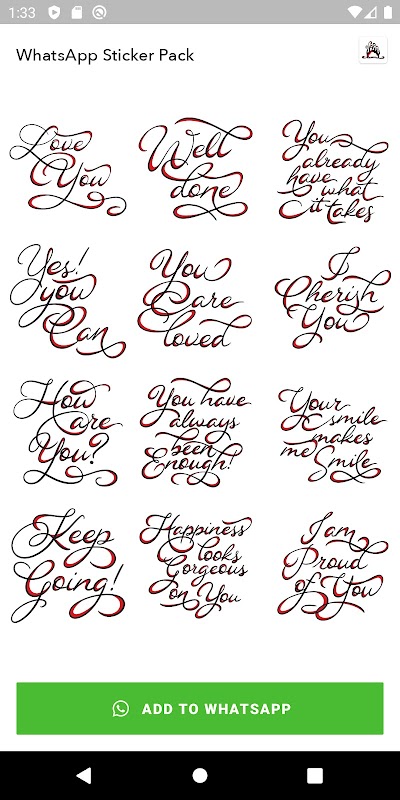 1:33
WhatsApp Sticker Pack
Love
You
Well
done
You
already
have what
it takes
Yes!
you
Can
You
Care
loved
I
Cherish
You
How
are
You?
You have
always
been
Enough!
Your
smile
makes
me Smile
Keep
Going!
Happiness
looks
Gorgeous
on You
I am
Proud
of You
ADD TO WHATSAPP